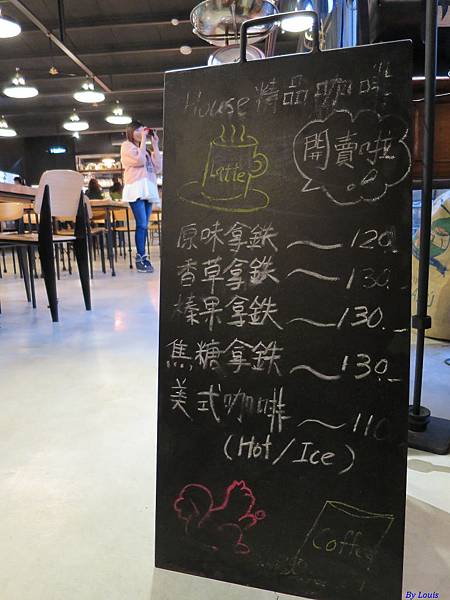 House 精品咖啡
開賣啦
Latte
原味拿鉄～120.
香草拿鉄～130.
榛果拿鉄～130.
焦糖拿鉄～130.
美式咖啡～110
(Hot/Ice)
Coffee
By Louis